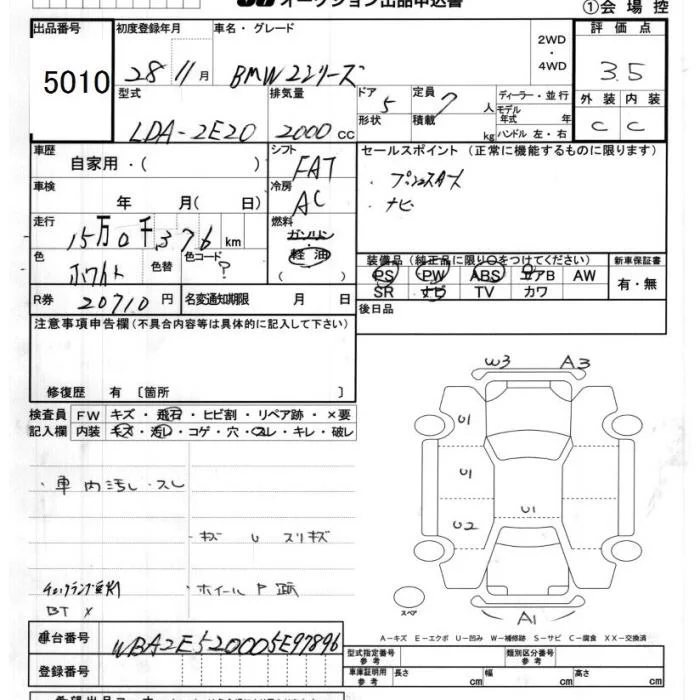 オークション出品申込書
①会場控
出品番号 初度登録年月 車名・グレード 評価点
5010 28 11月 BMW 2シリーズ 2WD・4WD 3.5
型式 排気量 ドア 5 定員 7人 ディーラー・並行 外装 内装
LDA-2E20 2000cc 形状 積載 kg モデル年式 年 C C
ハンドル 左・右
車歴 自家用・( ) シフト FAT セールスポイント (正常に機能するものに限ります)
車検 年 月( 日) 冷房 AC ・プッシュスタート
・ナビ
走行 15万0千376km 燃料 ガソリン 軽油 ( )
色 ホワイト 色替 色コード ?
装備品 (純正品に限り○をつけてください) 新車保証書
PS PW ABS エアB AW 有・無
SR ナビ TV カワ
R券 20710円 名変通知期限 月 日 後日品
注意事項申告欄(不具合内容等は具体的に記入して下さい)
修復歴 有 〔箇所 〕
検査員 FW キズ・飛石・ヒビ割・リペア跡・×要
記入欄 内装 キズ・汚レ・コゲ・穴・スレ・キレ・破レ
W3 A3
U1
U1
U2 U1
・車内汚レ・スレ
・キズ U スリキズ
・ホイール P
BT ×
スペア
A1
車台番号 WBA2E520005E97896
登録番号
A-キズ E-エクボ U-凹み W-補修跡 S-サビ C-腐食 XX-交換済
型式指定番号 参考 類別区分番号 参考
車庫証明用 参考 長さ cm 幅 cm 高さ cm